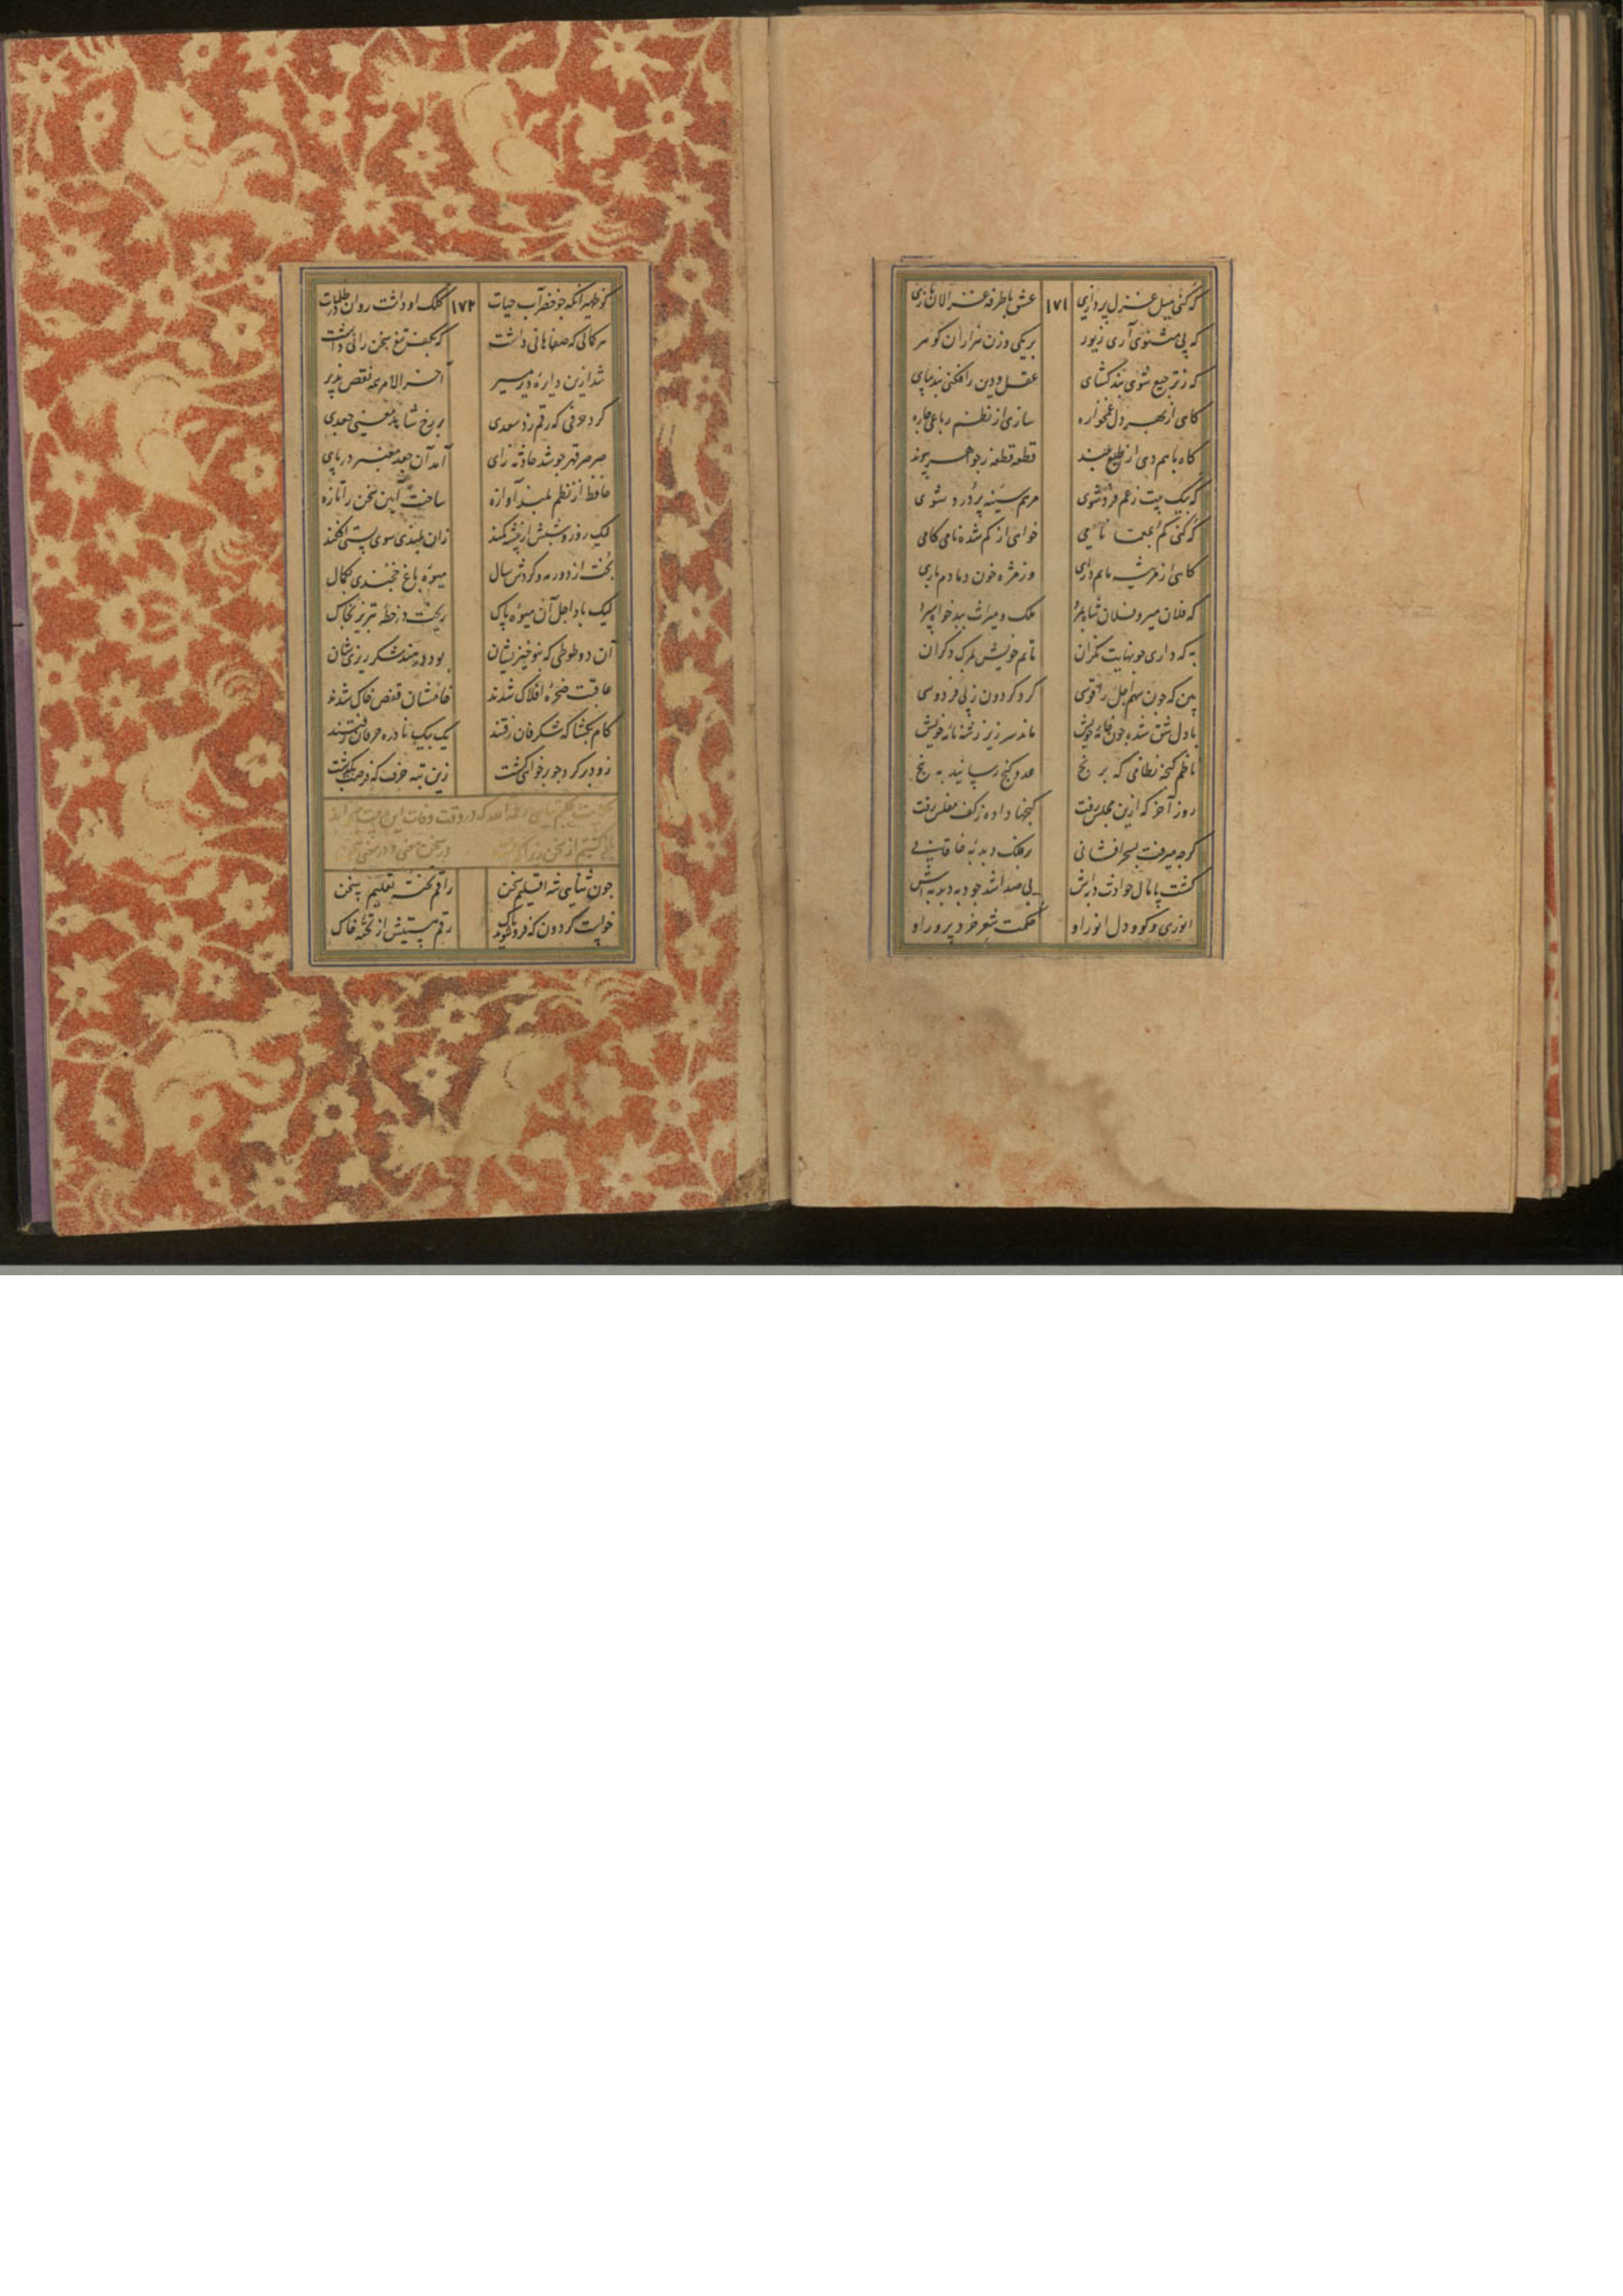 که کنی میل غزل پردازی ۱۷۱ عشق با طرفه غزالان بازی
که پی مثنوی آری زیور بر یکی وزن هزاران گوهر
که ز ترجیع شوی بند گشای عقل و دین را فکنی بند بپای
گاهی از بهر دل غمخواره سازی از نظم رباعی چاره
گاه با هم دهی از طبع بلند قطعه قطعه ز جواهر پیوند
که بیک بیت ز غم فرد شوی مرهم سینه پر درد شوی
که کنی گم بمعما نامی خواهی از گم شده نامی کامی
گاهی از مرثیه ماتم داری وز مژه خون دمادم باری
که فلان میر و فلان شاه بمرد ملک و میراث ببدخواه سپرد
به که داری چو نهایت نگران ماتم خویش بمرگ دگران
بین که چون سهم اجل را قوسی کرد گردون ز پی فردوسی
با دل شق شده چون خامه خویش ماند سر زیر ز شهنامه خویش
ناظم گنجه نظامی که برنج عدد گنج رسانید به پنج
روز آخر که ازین مجلس رفت گنجها داده ز کف مفلس رفت
گرچه میرفت بسحر افشانی بر فلک دبدبه خاقانی
گشت پامال حوادث دبه‌اش بی صدا شد چو دبه دبدبه‌اش
انوری کو و دل انور او حکمت شعر خرد پرور او
کو ظهیر آنکه چو خضر آب حیات ۱۷۲ کلک او داشت روان در ظلمات
هر کمالی که صفاهانی داشت که بکف تیغ سخن رانی داشت
شد ازین دایره دیر مسیر آخر الامر همه نقص پذیر
کرد حرفی که رقم زد سعدی بر رخ شاهد معنی جعدی
صرصر قهر چو شد حادثه زای آمد آن جعد معنبر در پای
حافظ از نظم بلند آوازه ساخت آیین سخن را تازه
لیک روز و شبش از پشه کمند زان بلندی سوی پستی افکند
پخت از دور مه و گردش سال میوه باغ خجندی بکمال
لیک باد اجل آن میوه پاک ریخت در خطه تبریز بخاک
آن دو طوطی که بنو خیزیشان بود در هند شکر ریزیشان
عاقبت سخره افلاک شدند خامشان قفس خاک شدند
کام بگشا که شگرفان رفتند یک بیک نادره حرفان رفتند
زود برگرد چو برخواهی گشت زین تبه حرف که فرصت بگذشت
حکایت حکیم سنایی رحمه الله که در وقت وفات این بیت میخواند
باز گشتیم از سخن زیرا که نیست در سخن معنی و در معنی سخن
چون سنایی شه اقلیم سخن راقم تخته تعلیم سخن
خواست گردون که فرو شوید پاک رقم هستیش از تخته خاک